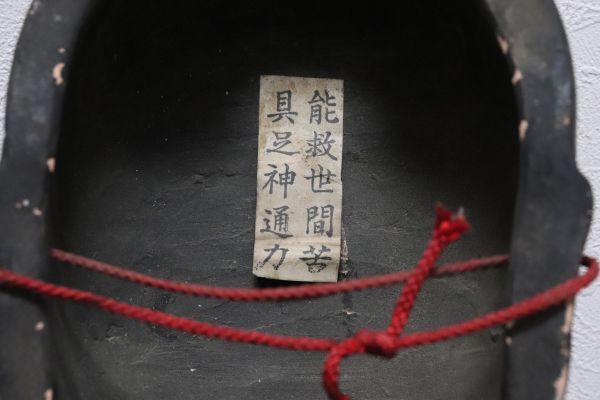 能救世間苦
具足神通力